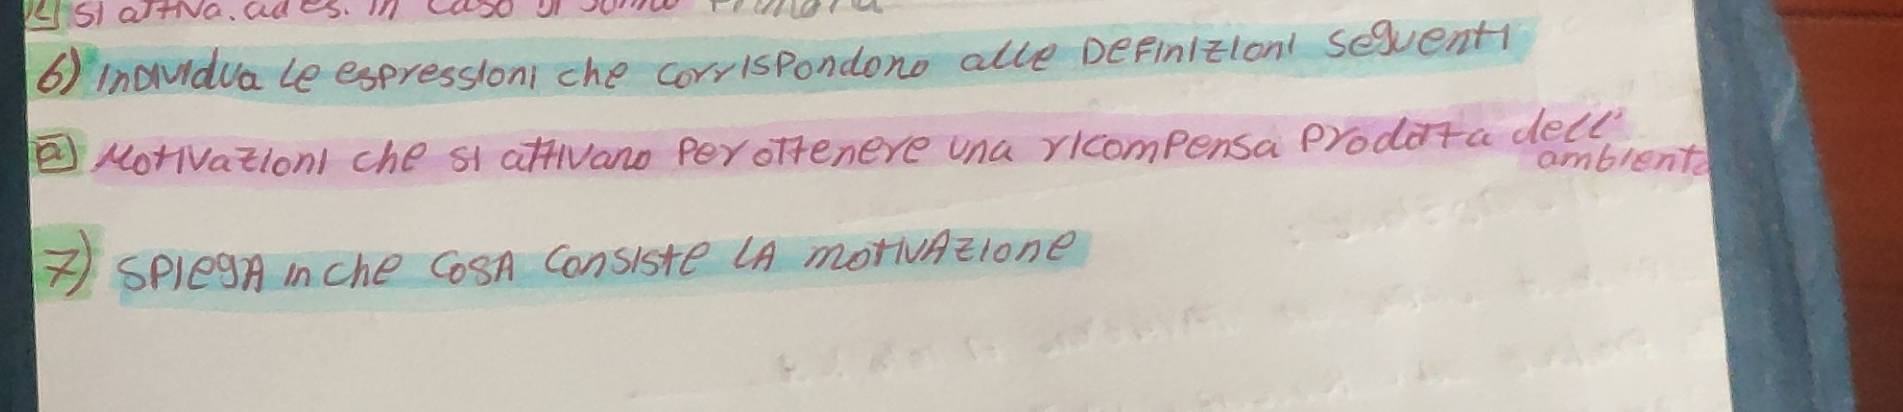 c) si attiva. ad es. in caso di sonno
6) Individua le espressioni che corrispondono alle Definizioni seguenti
a) Motivazioni che si attivano per ottenere una ricompensa prodotta dell'
ambiente
7) SPIEGA in che COSA Consiste LA MOTIVAZIONE